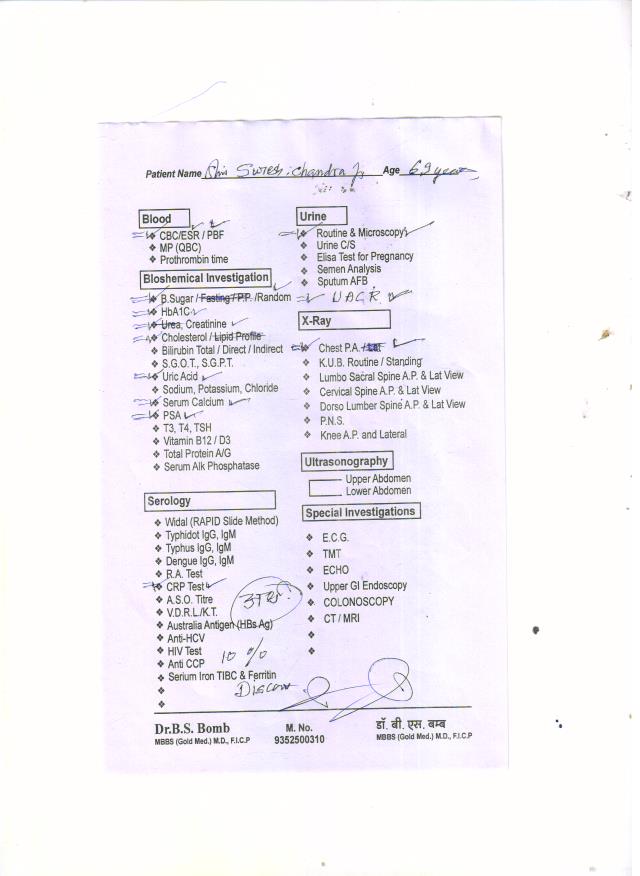 Patient Name Shri Suresh chandra Ji Age 69 years
Blood
CBC/ESR / PBF
MP (QBC)
Prothrombin time
Bioshemical Investigation
B.Sugar / Fasting / P.P. /Random
HbA1C
Urea, Creatinine
Cholesterol / Lipid Profile
Bilirubin Total / Direct / Indirect
S.G.O.T., S.G.P.T.
Uric Acid
Sodium, Potassium, Chloride
Serum Calcium
PSA
T3, T4, TSH
Vitamin B12 / D3
Total Protein A/G
Serum Alk Phosphatase
Serology
Widal (RAPID Slide Method)
Typhidot IgG, IgM
Typhus IgG, IgM
Dengue IgG, IgM
R.A. Test
CRP Test
A.S.O. Titre
V.D.R.L./K.T.
Australia Antigen (HBs Ag)
Anti-HCV
HIV Test
Anti CCP
10 %
Serium Iron TIBC & Ferritin
Discount
Urine
Routine & Microscopy
Urine C/S
Elisa Test for Pregnancy
Semen Analysis
Sputum AFB
UACR
X-Ray
Chest P.A.
K.U.B. Routine / Standing
Lumbo Sacral Spine A.P. & Lat View
Cervical Spine A.P. & Lat View
Dorso Lumber Spine A.P. & Lat View
P.N.S.
Knee A.P. and Lateral
Ultrasonography
Upper Abdomen
Lower Abdomen
Special Investigations
E.C.G.
TMT
ECHO
Upper GI Endoscopy
COLONOSCOPY
CT / MRI
Dr.B.S. Bomb
MBBS (Gold Med.) M.D., F.I.C.P
M. No.
9352500310
डॉ. बी. एस. बम्ब
MBBS (Gold Med.) M.D., F.I.C.P